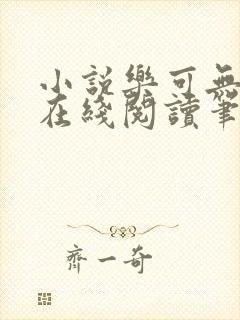 小説樂可無
在綫閱讀筆
齊一奇